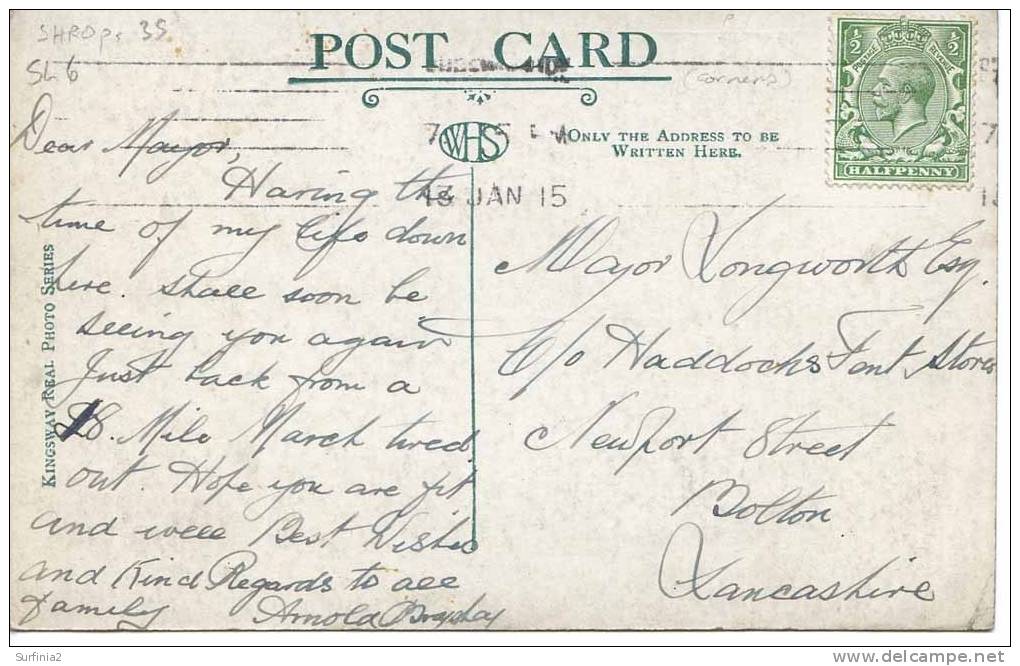 SHROPS 35
SL6
POST CARD
(corners)
WHS
ONLY THE ADDRESS TO BE
WRITTEN HERE.
1/2 1/2
POSTAGE REVENUE
HALFPENNY
7 5 PM
13 JAN 15
KINGSWAY REAL PHOTO SERIES
Dear Mayor,
Having the
time of my life down
here. Shall soon be
seeing you again
Just back from a
28. Mile March tired
out. Hope you are fit
and well Best Wishes
and Kind Regards to all
Family Arnold
Mayor Longworth Esq.
C/o Haddocks Fent Stores
Newport Street
Bolton
Lancashire
Surfinia2